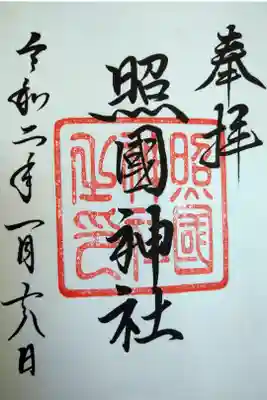 奉拝
照國神社
照國神社之印
令和二年一月十六日